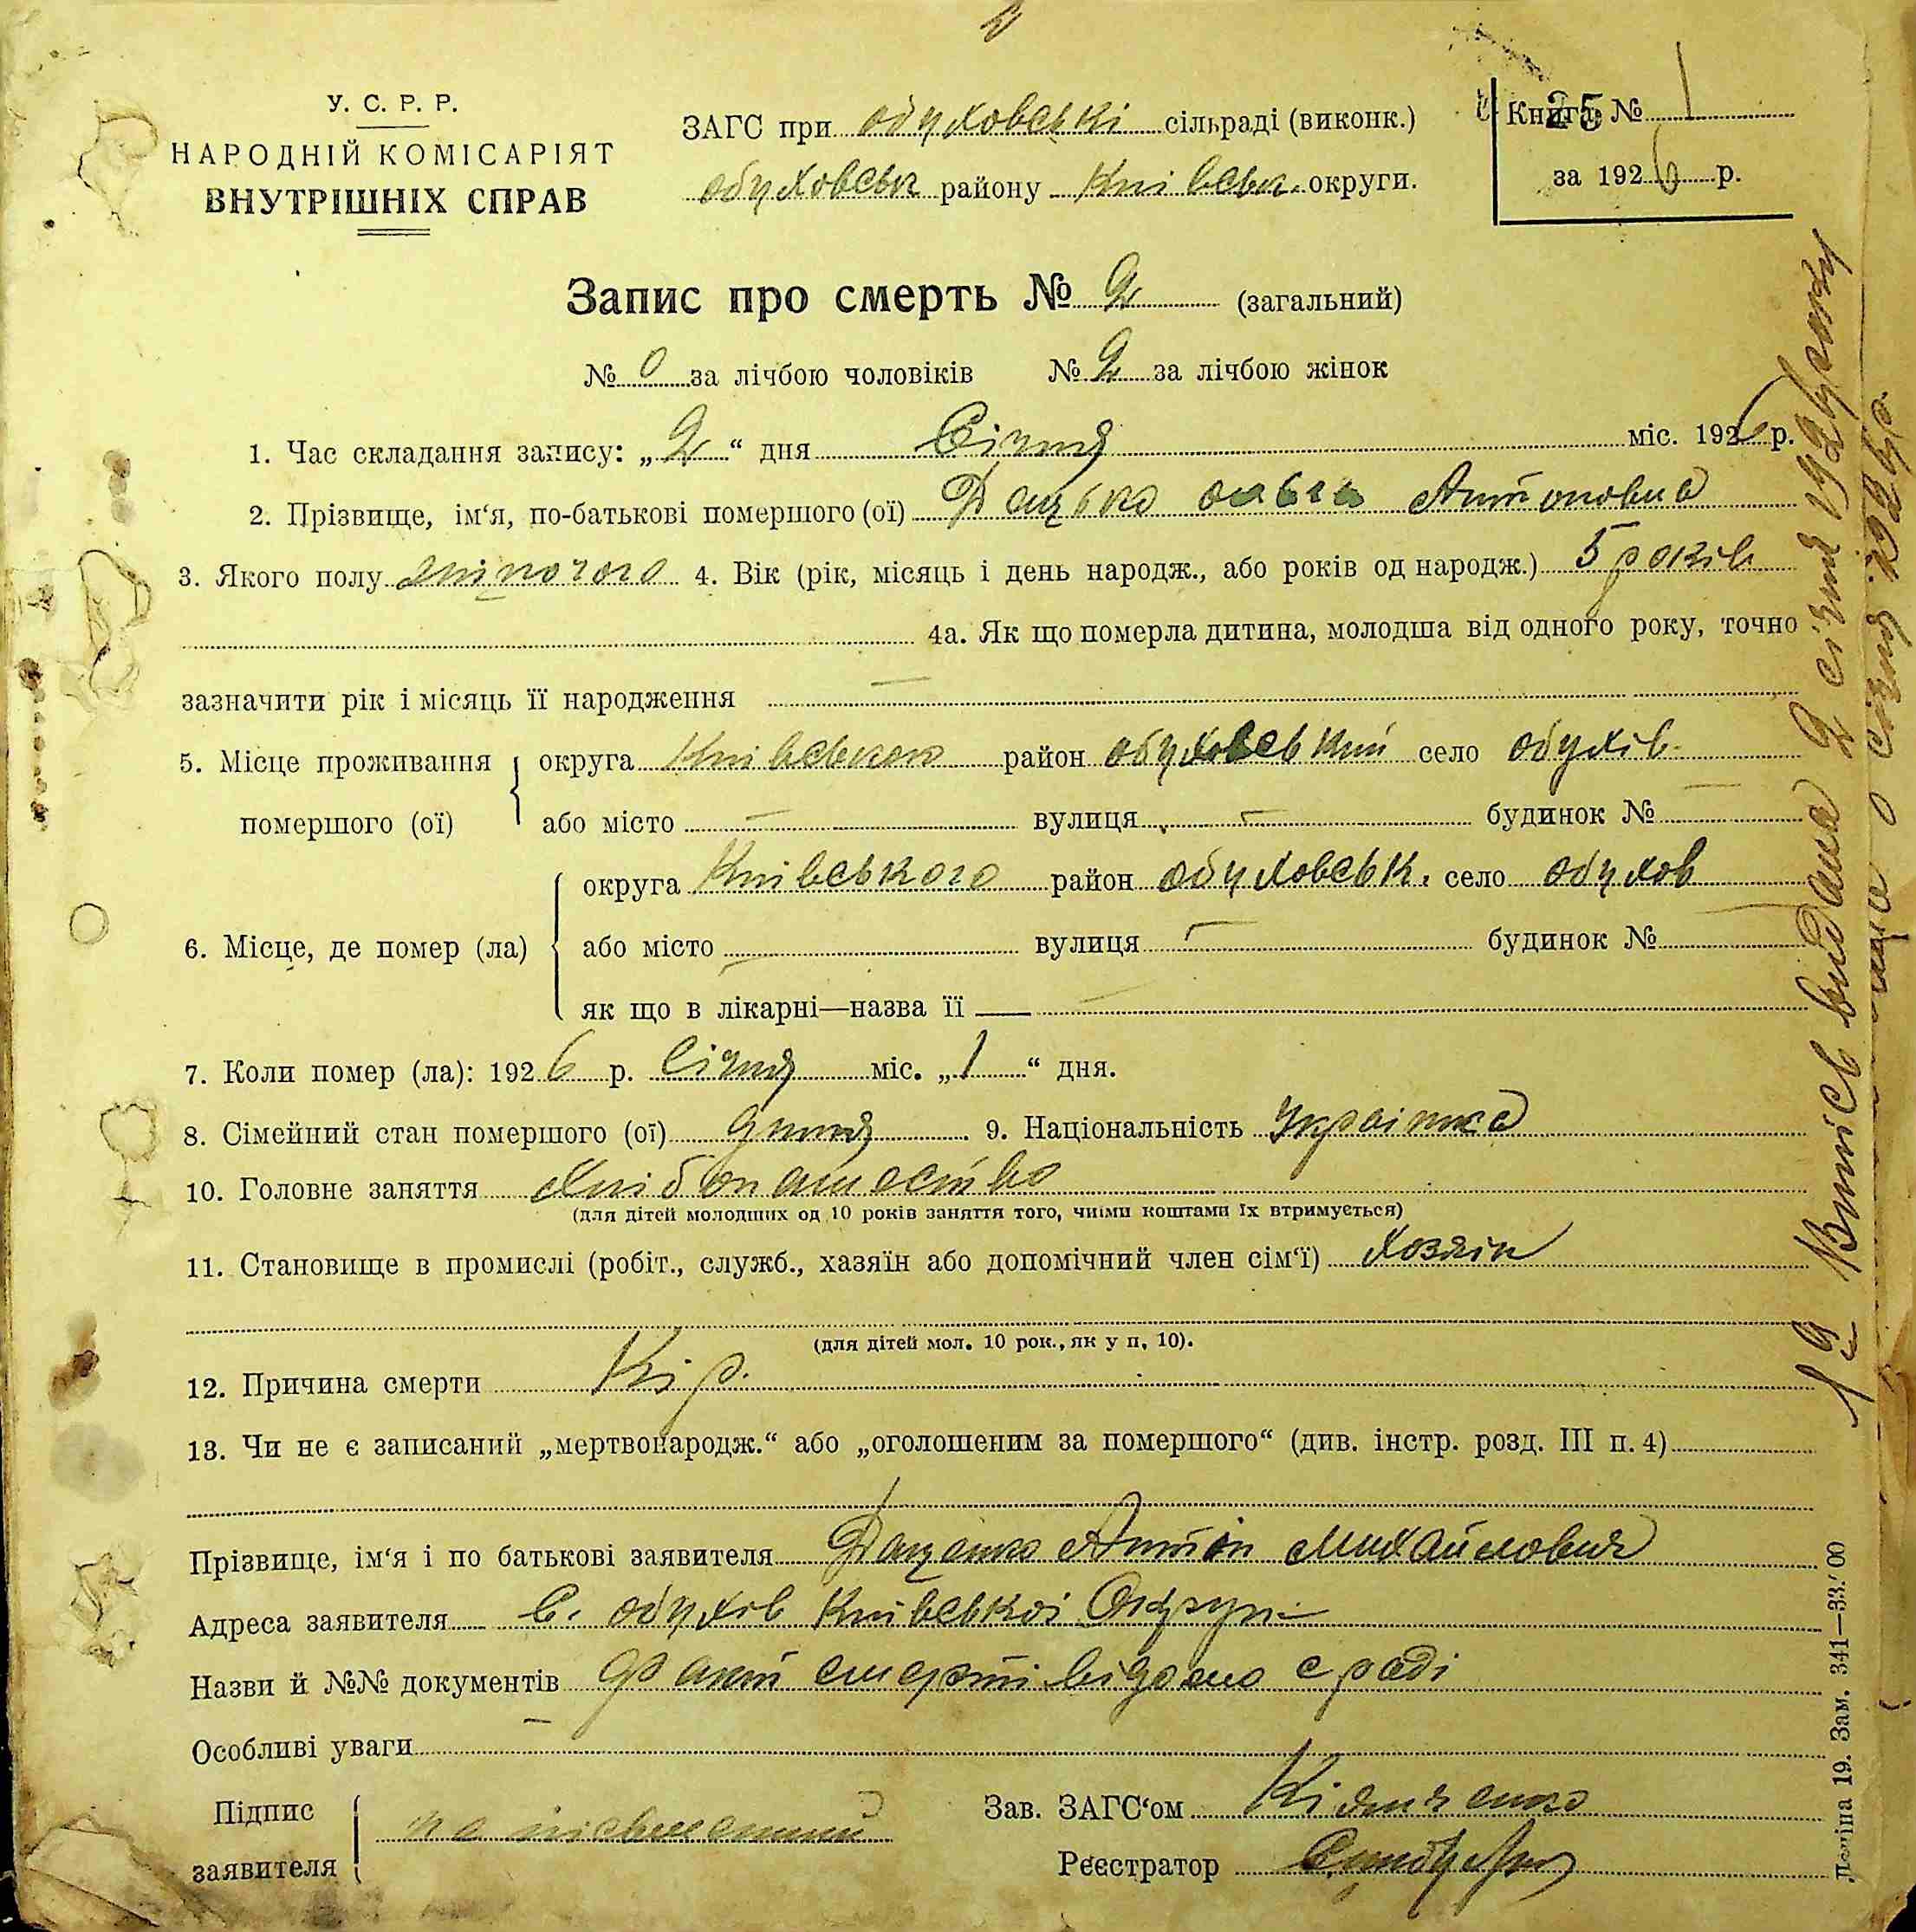 У. С. Р. Р.
НАРОДНІЙ КОМІСАРІЯТ
ВНУТРІШНІХ СПРАВ
ЗАГС при обуховські сільраді (виконк.)
обуховськ району Київськ. округи.
Книга № 1
25
за 1926 р.
Запис про смерть № 2 (загальний)
№ 0 за лічбою чоловіків № 2 за лічбою жінок
1. Час складання запису: „2“ дня Січня міс. 1926 р.
2. Прізвище, ім‘я, по-батькові помершого (ої) Антоновна
3. Якого полу жіночого 4. Вік (рік, місяць і день народж., або років од народж.) 5 років
4а. Як що померла дитина, молодша від одного року, точно
зазначити рік і місяць її народження —
5. Місце проживання помершого (ої)
округа Київського район обуховський село обухів
або місто — вулиця — будинок № —
6. Місце, де помер (ла)
округа Київського район обуховськ. село обухов
або місто — вулиця — будинок № —
як що в лікарні—назва її —
7. Коли помер (ла): 1926 р. Січня міс. „1“ дня.
8. Сімейний стан помершого (ої) 9. Національність Українка
10. Головне заняття Хлібопашество
(для дітей молодших од 10 років заняття того, чиїми коштами їх втримується)
11. Становище в промислі (робіт., служб., хазяїн або допомічний член сім‘ї) Хозяін
(для дітей мол. 10 рок., як у п, 10).
12. Причина смерти Кір.
13. Чи не є записаний „мертвонародж.“ або „оголошеним за помершого“ (див. інстр. розд. III п. 4)
Прізвище, ім‘я і по батькові заявителя Даценко Антін Михайлович
Адреса заявителя с. обухів Київської Округи
Назви й №№ документів Факт смерти відомо с раді
Особливі уваги —
Підпис заявителя не písьменний
Зав. ЗАГС‘ом
Реєстратор
Випісь видана 2 січня 1926 року
19. Зам. 341—33.